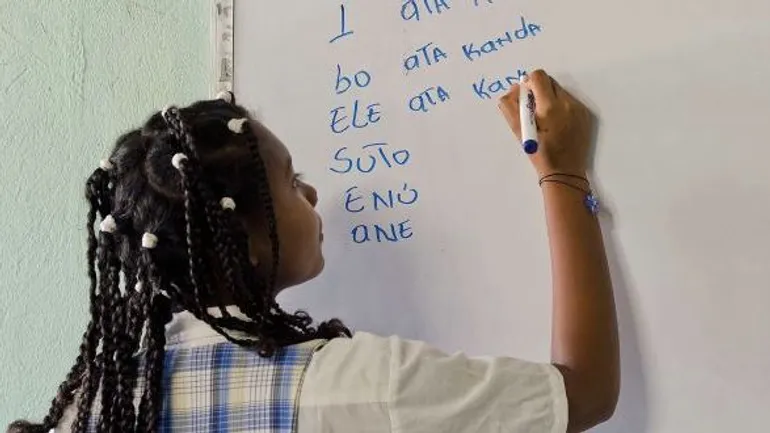 I aTA
bo aTA KaNdA
ELE aTA
SUTO
ENÚ
aNE